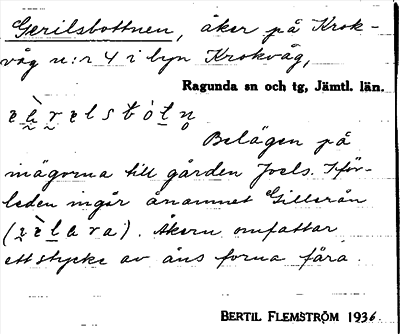 Gerilsbottnen, åker på Krok-
våg n:r 4 i byn Krokvåg,
Ragunda sn och tg, Jämtl. län.
Belägen på
mågorna till gården Joels. I för-
leden ingår ånamnet Gillerån
Åkern omfattar
ett stycke av åns forna fåra.
BERTIL FLEMSTRÖM 1936.